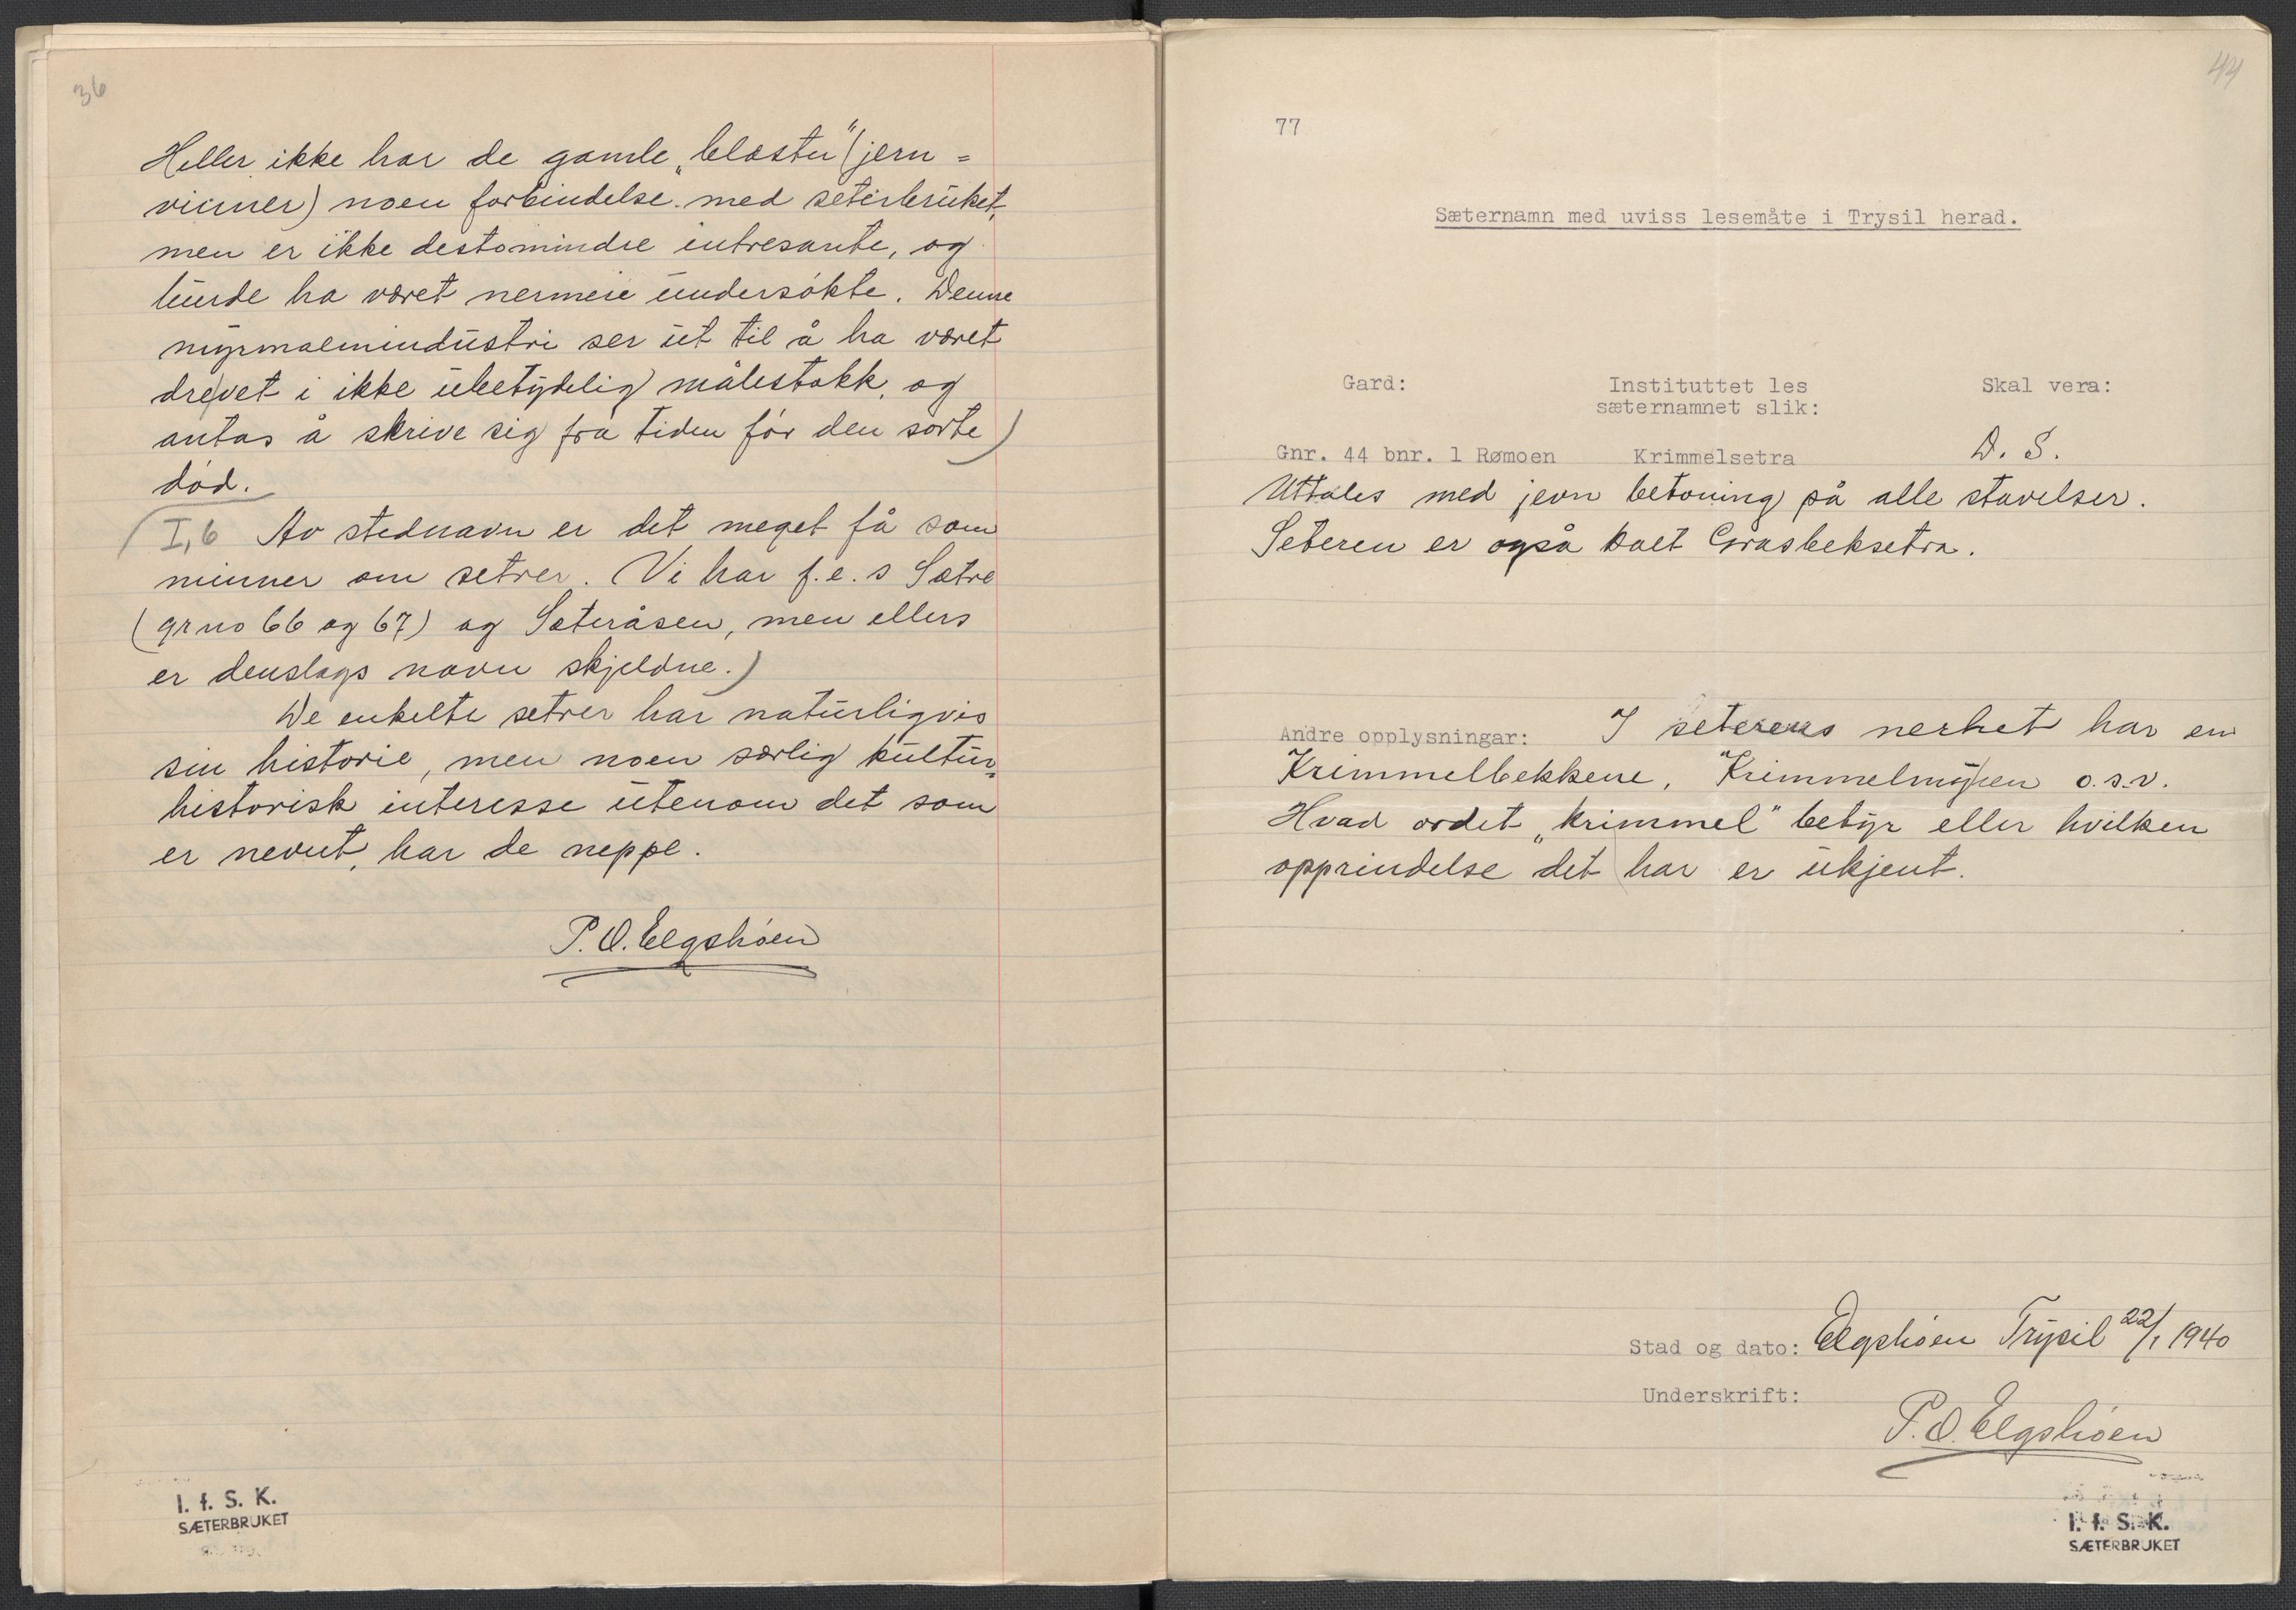 36
Heller ikke har de gamle „blæstu" (jern=
vinner) noen forbindelse med seterbruket,
men er ikke destomindre intresante, og
burde ha været nermere undersökte. Denne
myrmalmindustri ser ut til å ha været
drevet i ikke ubetydelig målestokk, og
antas å skrive sig fra tiden før den sorte
död.
I,6 Av stednavn er det meget få som
minner om setrer. Vi har f.e.s Sætre
(grno 66 og 67) og Sæteråsen, men ellers
er denslags navn skjeldne.)
De enkelte setrer har naturligvis
sin historie, men noen særlig kultur=
historisk interesse utenom det som
er nevnt, har de neppe.
P. O. Elgshöen
I. f. S. K.
SÆTERBRUKET
44
77
Sæternamn med uviss lesemåte i Trysil herad.
Gard: Instituttet les Skal vera:
sæternamnet slik:
Gnr. 44 bnr. 1 Rømoen Krimmelsetra D. S.
Uttales med jevn betoning på alle stavelser.
Seteren er også kalt Grasbeksetra.
Andre opplysningar: I seterens nerhet har en
Krimmelbekkene, Krimmelmyren o.s.v.
Hvad ordet „krimmel" betyr eller hvilken
opprindelse det har er ukjent.
Stad og dato: Elgshöen Trysil 22/1 1940
Underskrift:
P. O. Elgshöen
I. f. S. K.
SÆTERBRUKET